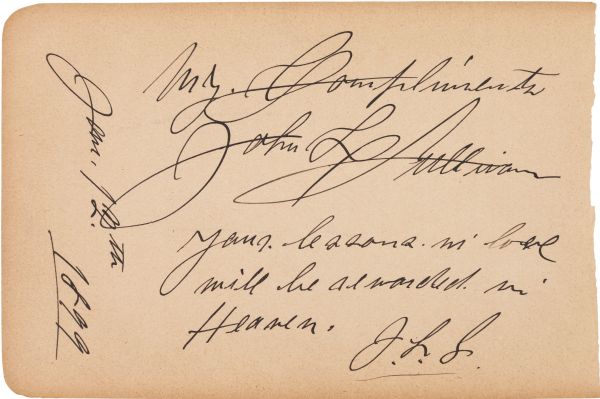 My. Compliments
John L Sullivan
your. lessons. in love
will be rewarded. in
Heaven.
J. L. S.
Jan. 12th
1899